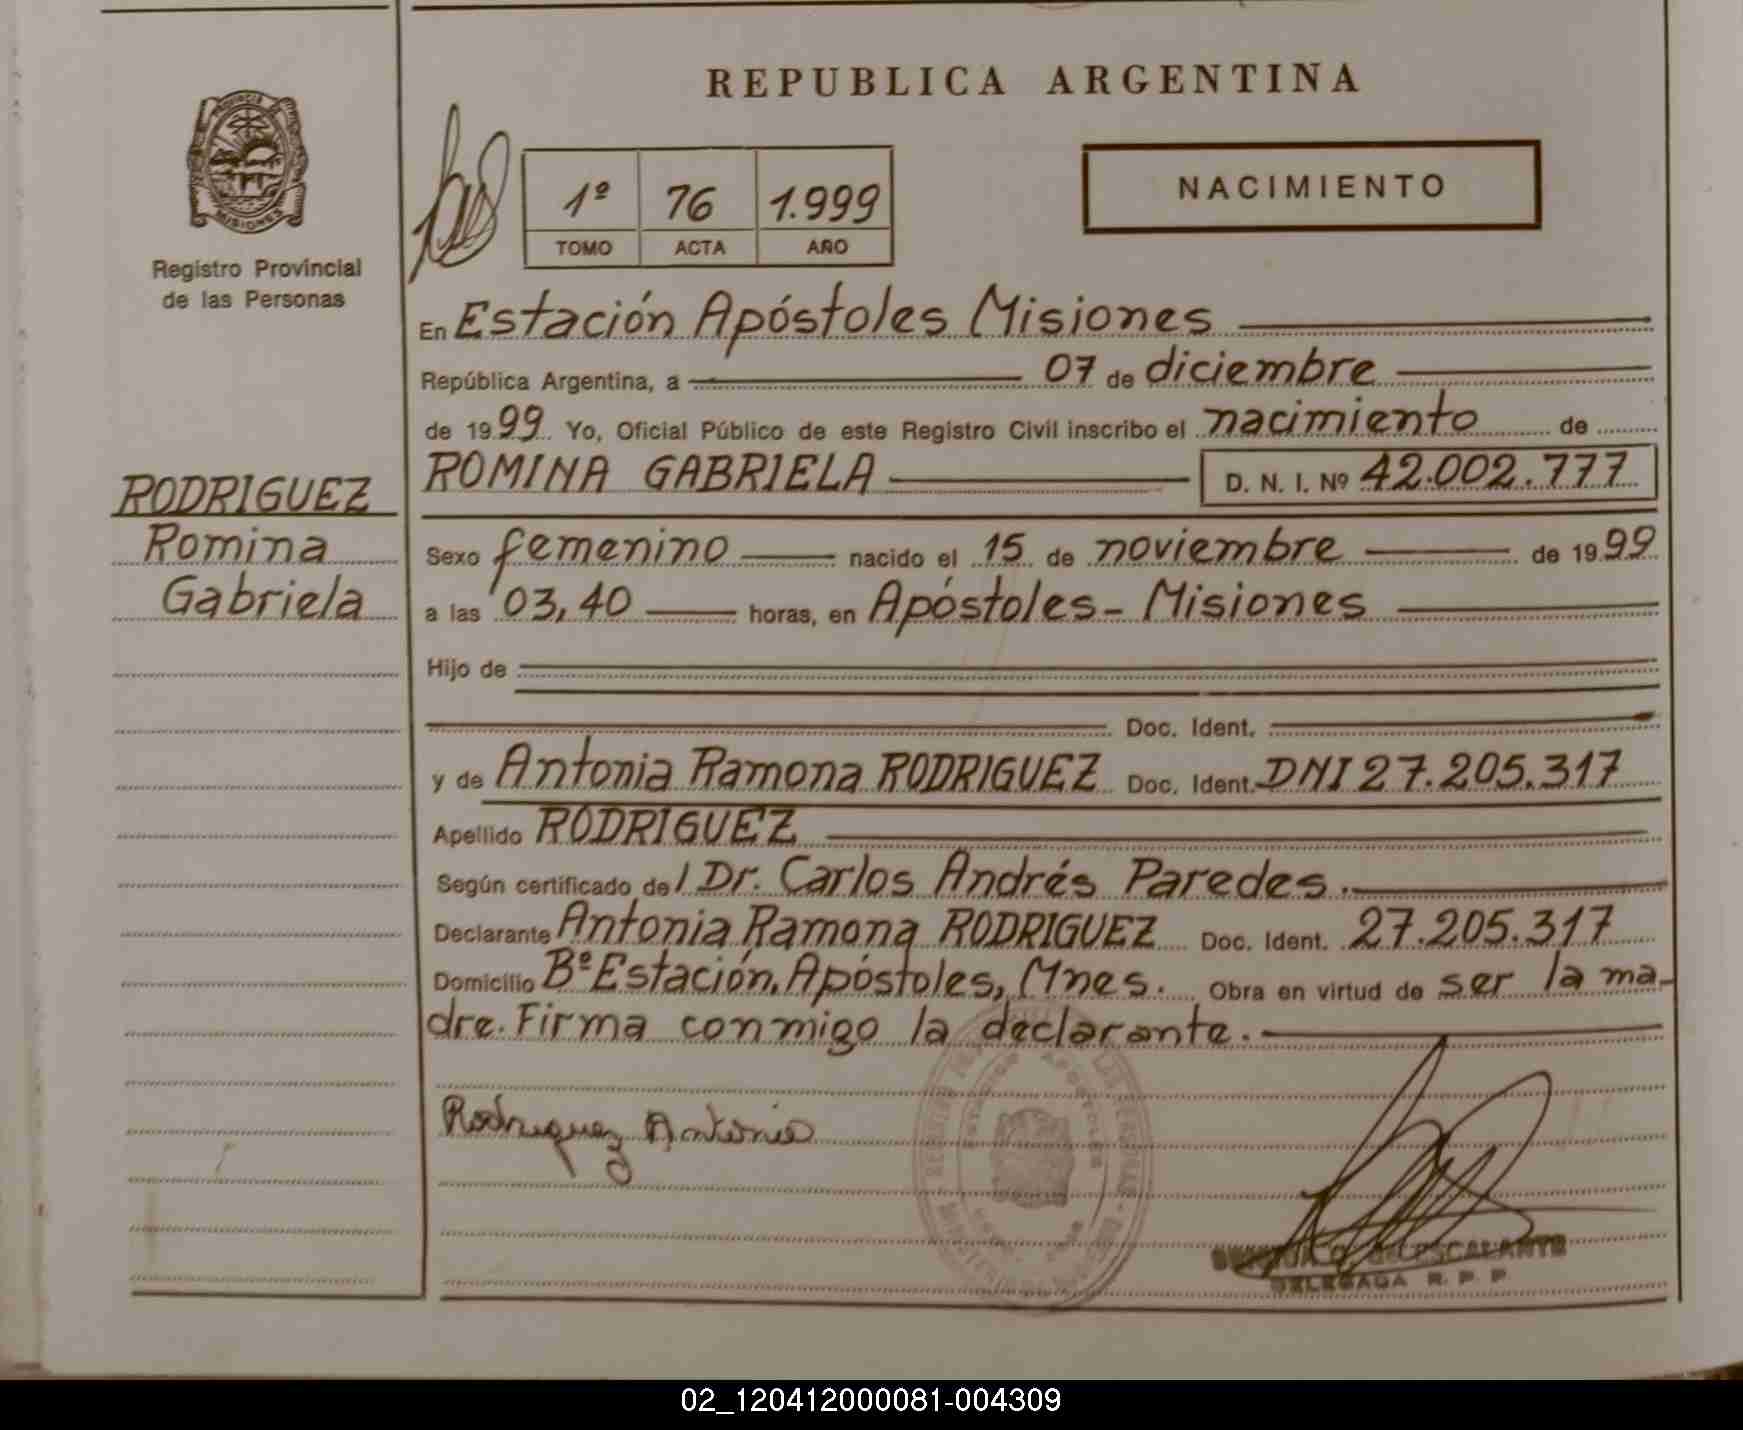 REPUBLICA ARGENTINA
PROVINCIA DE
MISIONES
Registro Provincial
de las Personas
1º 76 1.999
TOMO ACTA AÑO
NACIMIENTO
En Estación Apóstoles Misiones
República Argentina, a 07 de diciembre
de 1999 Yo, Oficial Público de este Registro Civil inscribo el nacimiento de
ROMINA GABRIELA D. N. I. Nº 42.002.777
RODRIGUEZ
Romina
Gabriela
Sexo femenino nacido el 15 de noviembre de 1999
a las 03,40 horas, en Apóstoles - Misiones
Hijo de
Doc. Ident.
y de Antonia Ramona RODRIGUEZ Doc. Ident. DNI 27.205.317
Apellido RODRIGUEZ
Según certificado de/ Dr. Carlos Andrés Paredes.
Declarante Antonia Ramona RODRIGUEZ Doc. Ident. 27.205.317
Domicilio Bº Estación, Apóstoles, Mnes. Obra en virtud de ser la ma-
dre. Firma conmigo la declarante.
Rodriguez Antonia
ESTACION APOSTOLES
ESCALANTE
DELEGADA R. P. P.
02_120412000081-004309